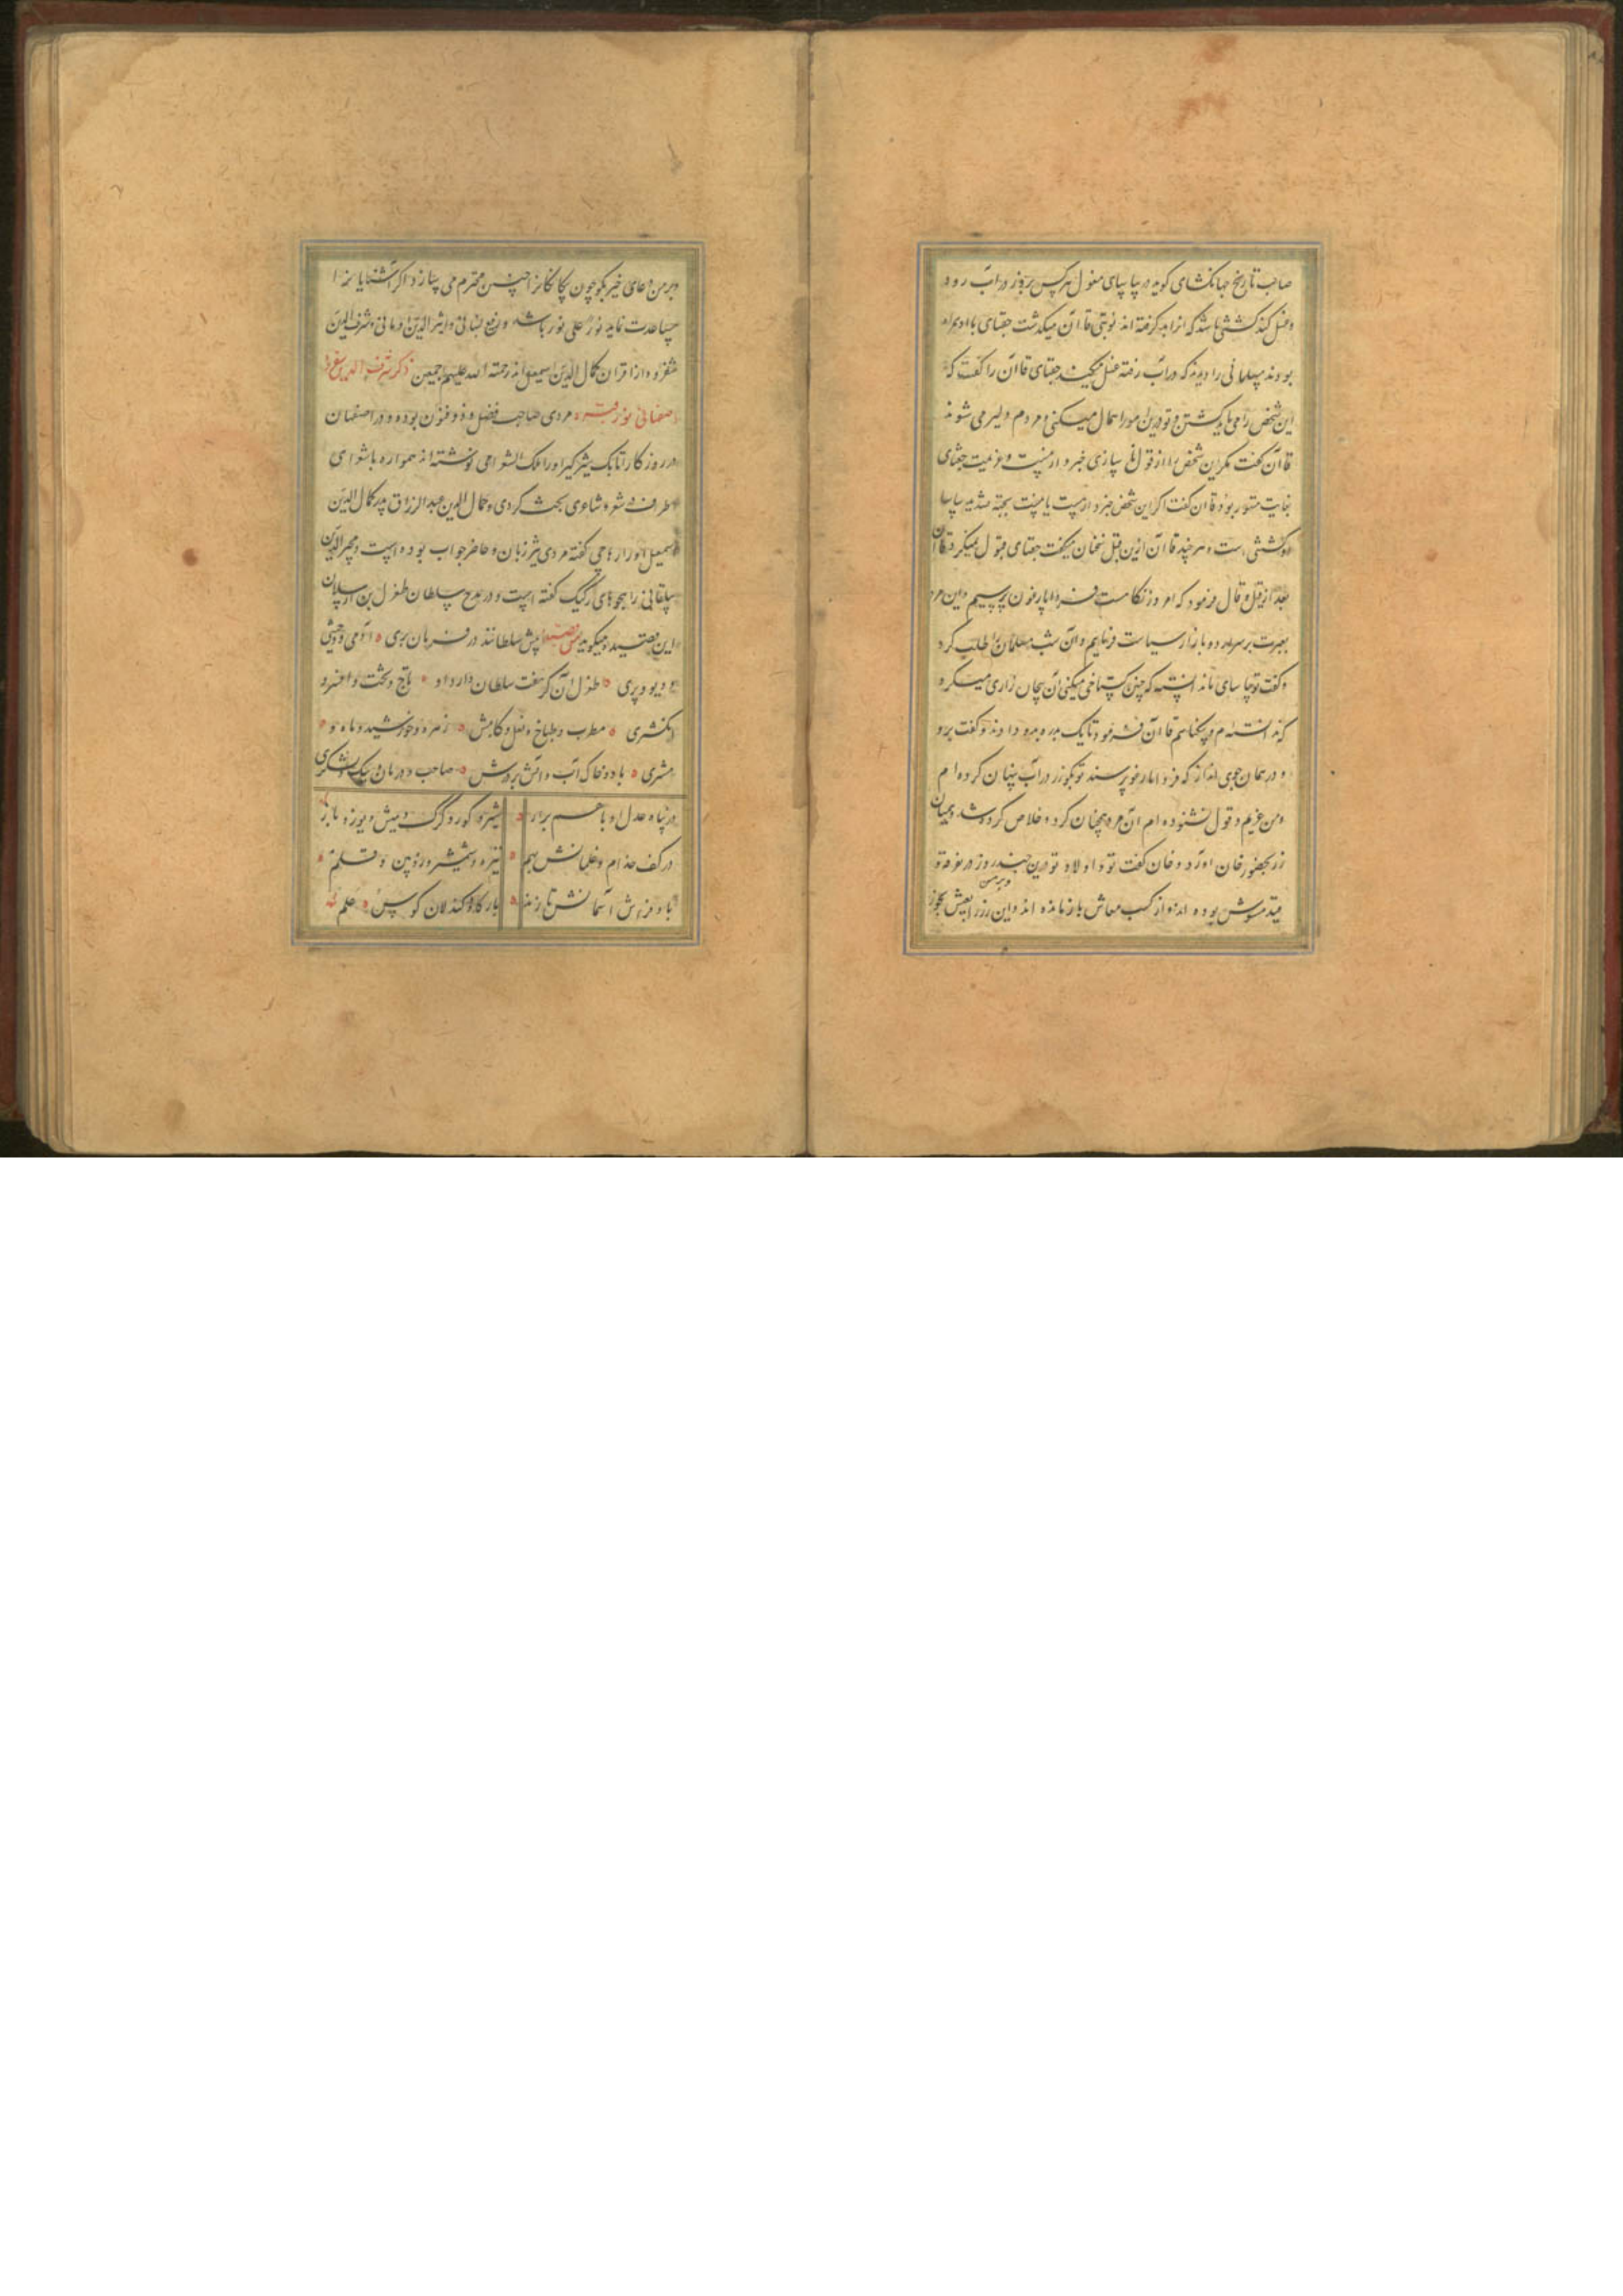 صاحب تاریخ جهانکشای کوید در یاسای مغول هرکس بروز در آب رود
و غسل کند کشتنی باشد که آنرا بد کرفته اند نوبتی قاآن میکذشت جغتای با او همراه
بودند مسلمانی را دیدند که در آب رفته غسل میکند جغتای قاآن را کفت که
این شخص را می باید کشتن و تو درین امور اهمال میکنی و مردم دلیر می شوند
قاآن کفت مکر این شخص را از قول ما و یاسای خبردار نیست و عزیمت جغتای
بغایت متهور بود قاآن کفت اکر این شخص خبردار هست یا نیست بجهة تمشیت یاسا
او کشتنی است و هر چند قاآن ازین قبل سخنان میکفت جغتای قبول نمیکرد قاآن
بعد از قیل و قال فرمود که امروز بیکاهست فردا یارغون پرسیم و این مرد
بعبرت بر سر اردو بازار سیاست فرماییم و آن شب مسلمان را طلب کرد
و کفت تو یاسای ما ندانسته که چنین کستاخی میکنی آن بیچاره زاری میکرد
که ندانستم و بیکناهم قاآن فرمود تا یک بدره بدو دادند و کفت برو
و در همان جوی انداز که فردا یارغو پرسند تو بکو زر در آب پنهان کرده ام
و من غریم و قول نشنوده ام آن مرد همچنان کرد و خلاص کرده شد و همیان
زر بحضور خان آورد و خان کفت تو و اولاد تو درین چند روز در غرفه تو
مقید مشوش بوده اند و از کسب معاش باز مانده اند و این زر را بعیش بخور
و بر من
و بر من دعای خیر بکو چون بیکانکانرا چنین محترم می سازد اکر آشنایانرا
مساعدت نماید نور علی نور باشد و رفیع لنبانی و اثیر الدین اومانی و شرف الدین
شفروه از اقران کمال الدین اسمعیل اند رحمة الله علیهم اجمعین ذکر شرف الدین شفروه
اصفهانی نور قبره مردی صاحب فضل و ذو فنون بوده و در اصفهان
در روزکار اتابک شیرکیر او را ملک الشعرا می نوشته اند همواره با شعرای
اطراف در شعر و شاعری بحث کردی و جمال الدین عبد الرزاق پدر کمال الدین
اسمعیل او را اهاجی کفته مردی تیز زبان و حاضر جواب بوده است و مجیر الدین
بیلقانی را هجوهای رکیک کفته است و در مدح سلطان طغرل بن ارسلان
این قصیده میکوید من قصیده پیش سلطانند در فرمان بری ه آدمی و وحشی
و دیو و پری ه طغرل آن کز هفت سلطان دارد او ه تاج و تخت و افسر و
انکشتری ه مطرب و طباخ و نعل و کامش ه زهره و خورشید و ماه و
مشتری ه باد و خاک و آب و آتش بر درش ه صاحب و دربان و پیک و لشکری
در پناه عدل او با هم برابر ه شیر و کور و کرک و میش و یوز و باز
در کف خدام و غلمانش بهم ه تیر و شمشیر و زوبین و قلم ه
باد فراش آسمانش تا زند ه بارکاه و کندلان کوس و علم